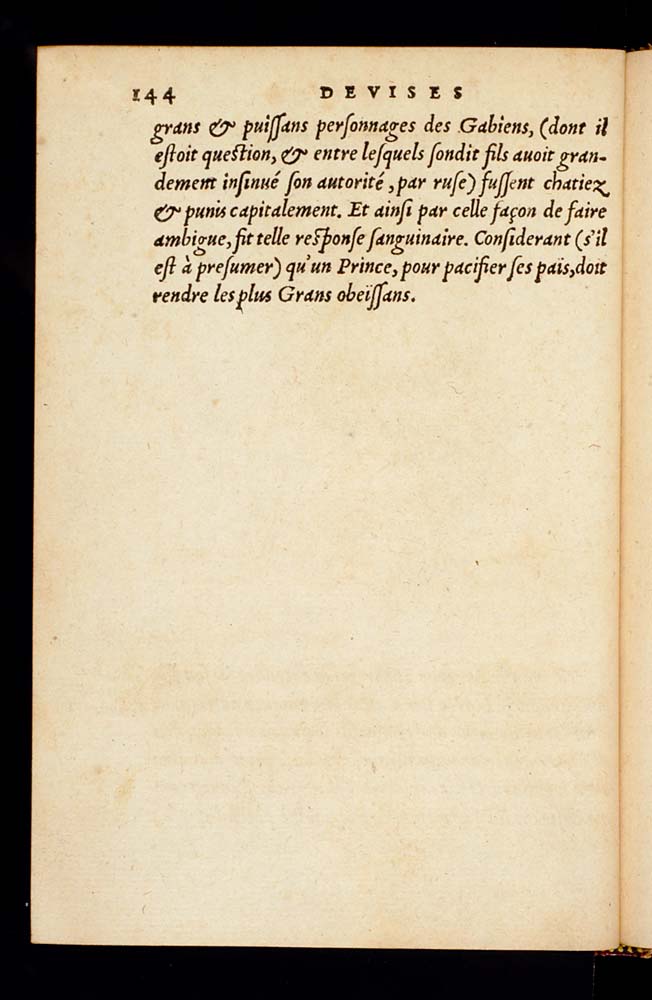 144 DEVISES
grans & puiſſans perſonnages des Gabiens, (dont il
eſtoit queſtion, & entre leſquels ſondit fils auoit gran-
dement inſinué ſon autorité, par ruſe) fuſſent chatiez
& punis capitalement. Et ainſi par celle façon de faire
ambigue, fit telle reſponſe ſanguinaire. Conſiderant (s'il
eſt à preſumer) qu'un Prince, pour pacifier ſes païs, doit
rendre les plus Grans obeïſſans.